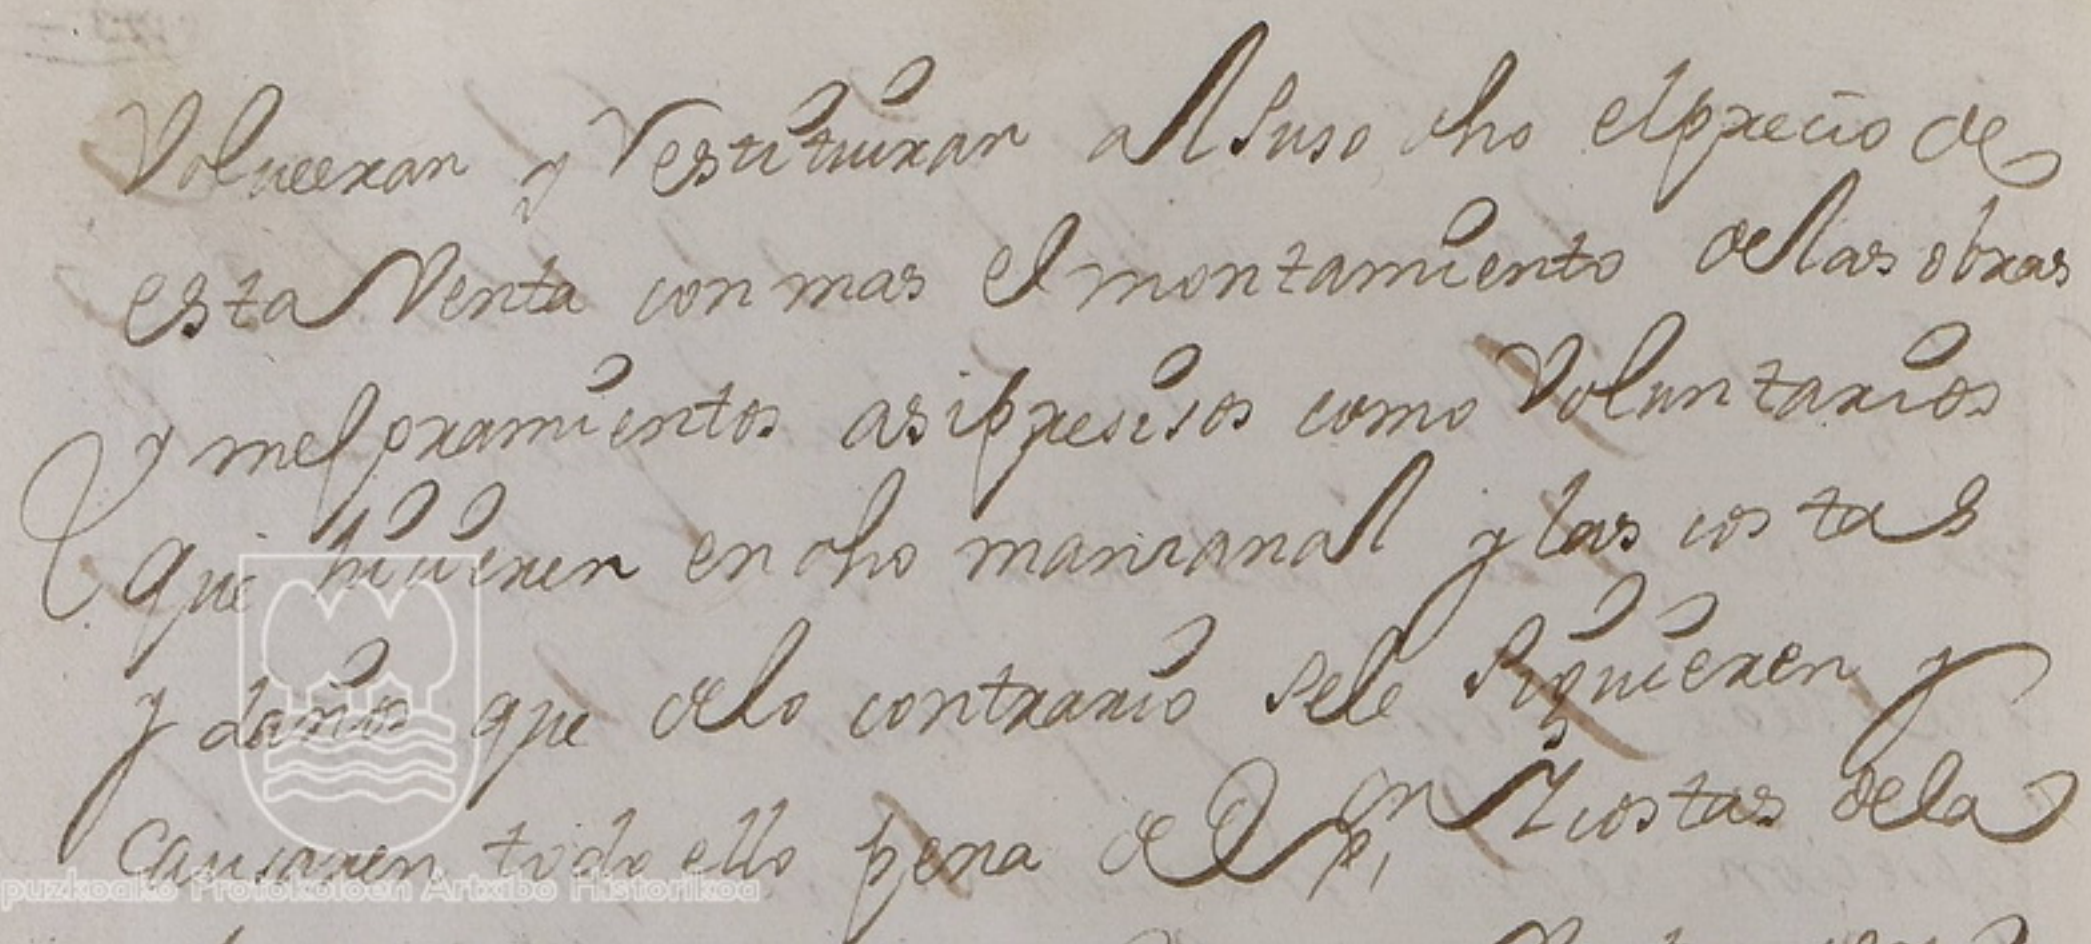 Volueeran y Restituiran al suso dho el precio de
esta Venta con mas el montamiento de las obras
y mejoramientos asi presisos como Voluntarios
que hiçieren en dho mançanal y las costas
y daños que de lo contrario se le siguieren y
causaren todo ello pena de exon y costas de la
puzkoako Protokoloen Artxibo Historikoa